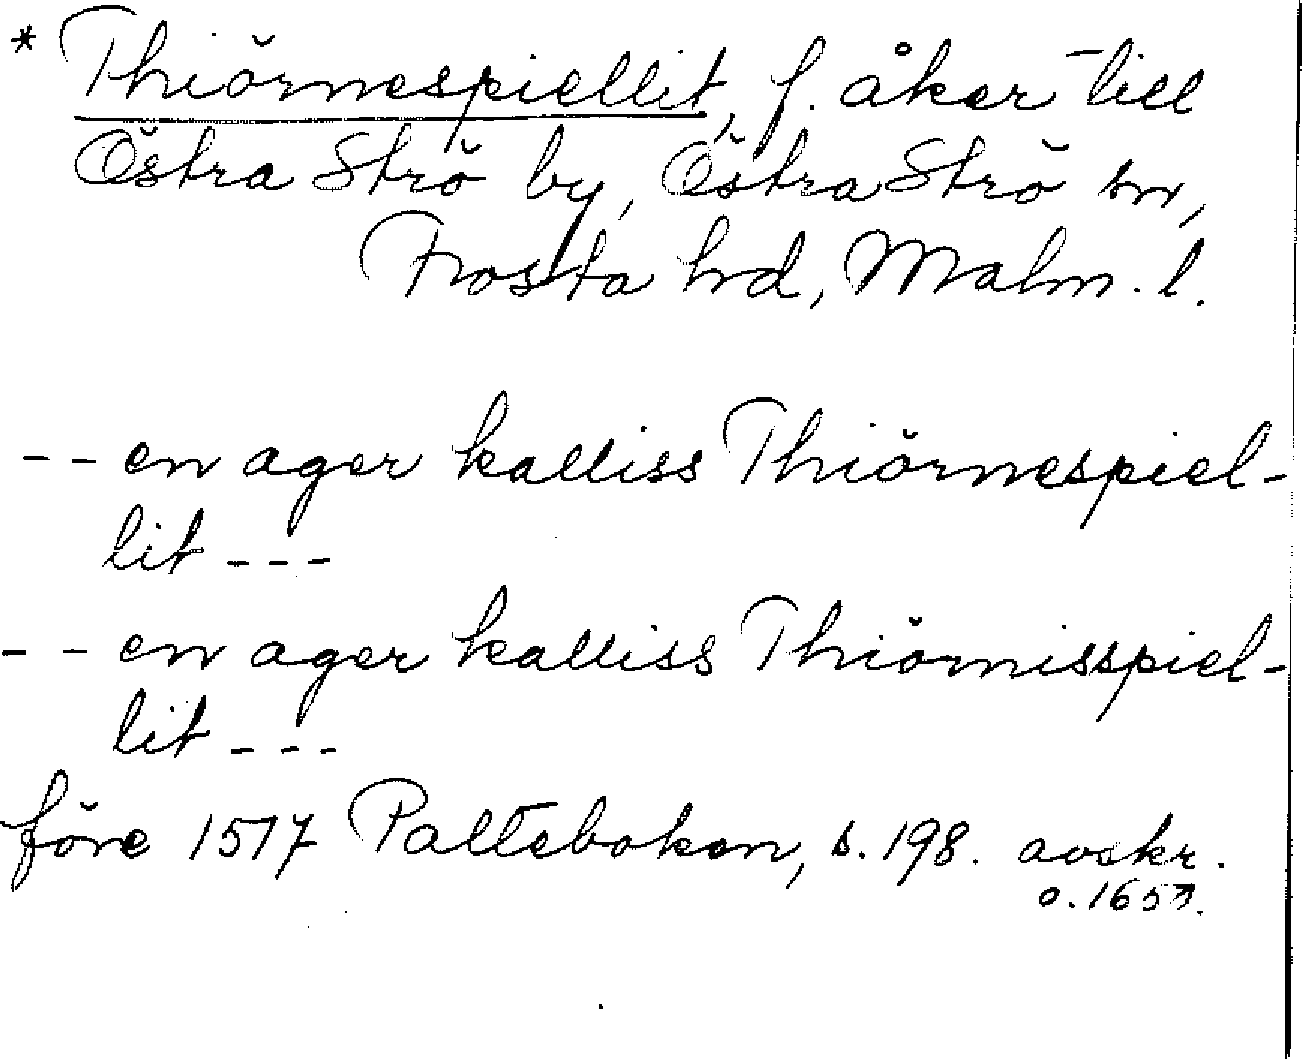 * Thiörnespiellit, f. åker till
Östra Strö by, Östra Strö sn,
Frosta hd, Malm. l.
-- en ager kalliss Thiörnespiel-
lit ---
-- en ager kalliss Thiörnisspiel-
lit ---
före 1517 Palteboken, s. 198. avskr.
o. 1650.